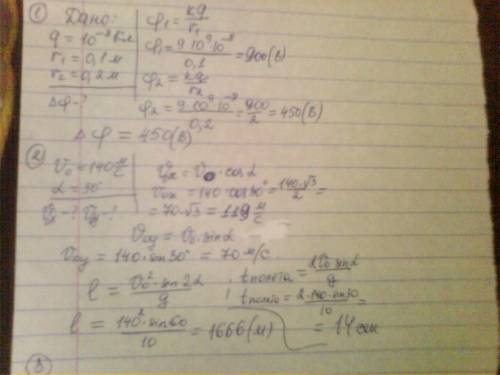 ① Дано:
q = 10⁻⁸ Кл
r₁ = 0,1 м
r₂ = 0,2 м
Δφ - ?
φ₁ = kq/r₁
φ₁ = 9·10⁹·10⁻⁸/0,1 = 900 (В)
φ₂ = kq/r₂
φ₂ = 9·10⁹·10⁻⁸/0,2 = 900/2 = 450 (В)
Δφ = 450 (В)
② V₀ = 140 м/с
α = 30°
Vₓ - ? Vy - ?
V₀ₓ = V₀ · cosα
V₀ₓ = 140 · cos30° = 140·√3/2 =
= 70·√3 = 119 м/с
V₀y = V₀·sinα
V₀y = 140 · sin30° = 70 м/с
l = V₀²·sin2α/g
l = 140²·sin60/10 = 1666 (м)
tполета = 2V₀·sinα/g
tполета = 2·140·sin30/10 =
= 14 сек
③